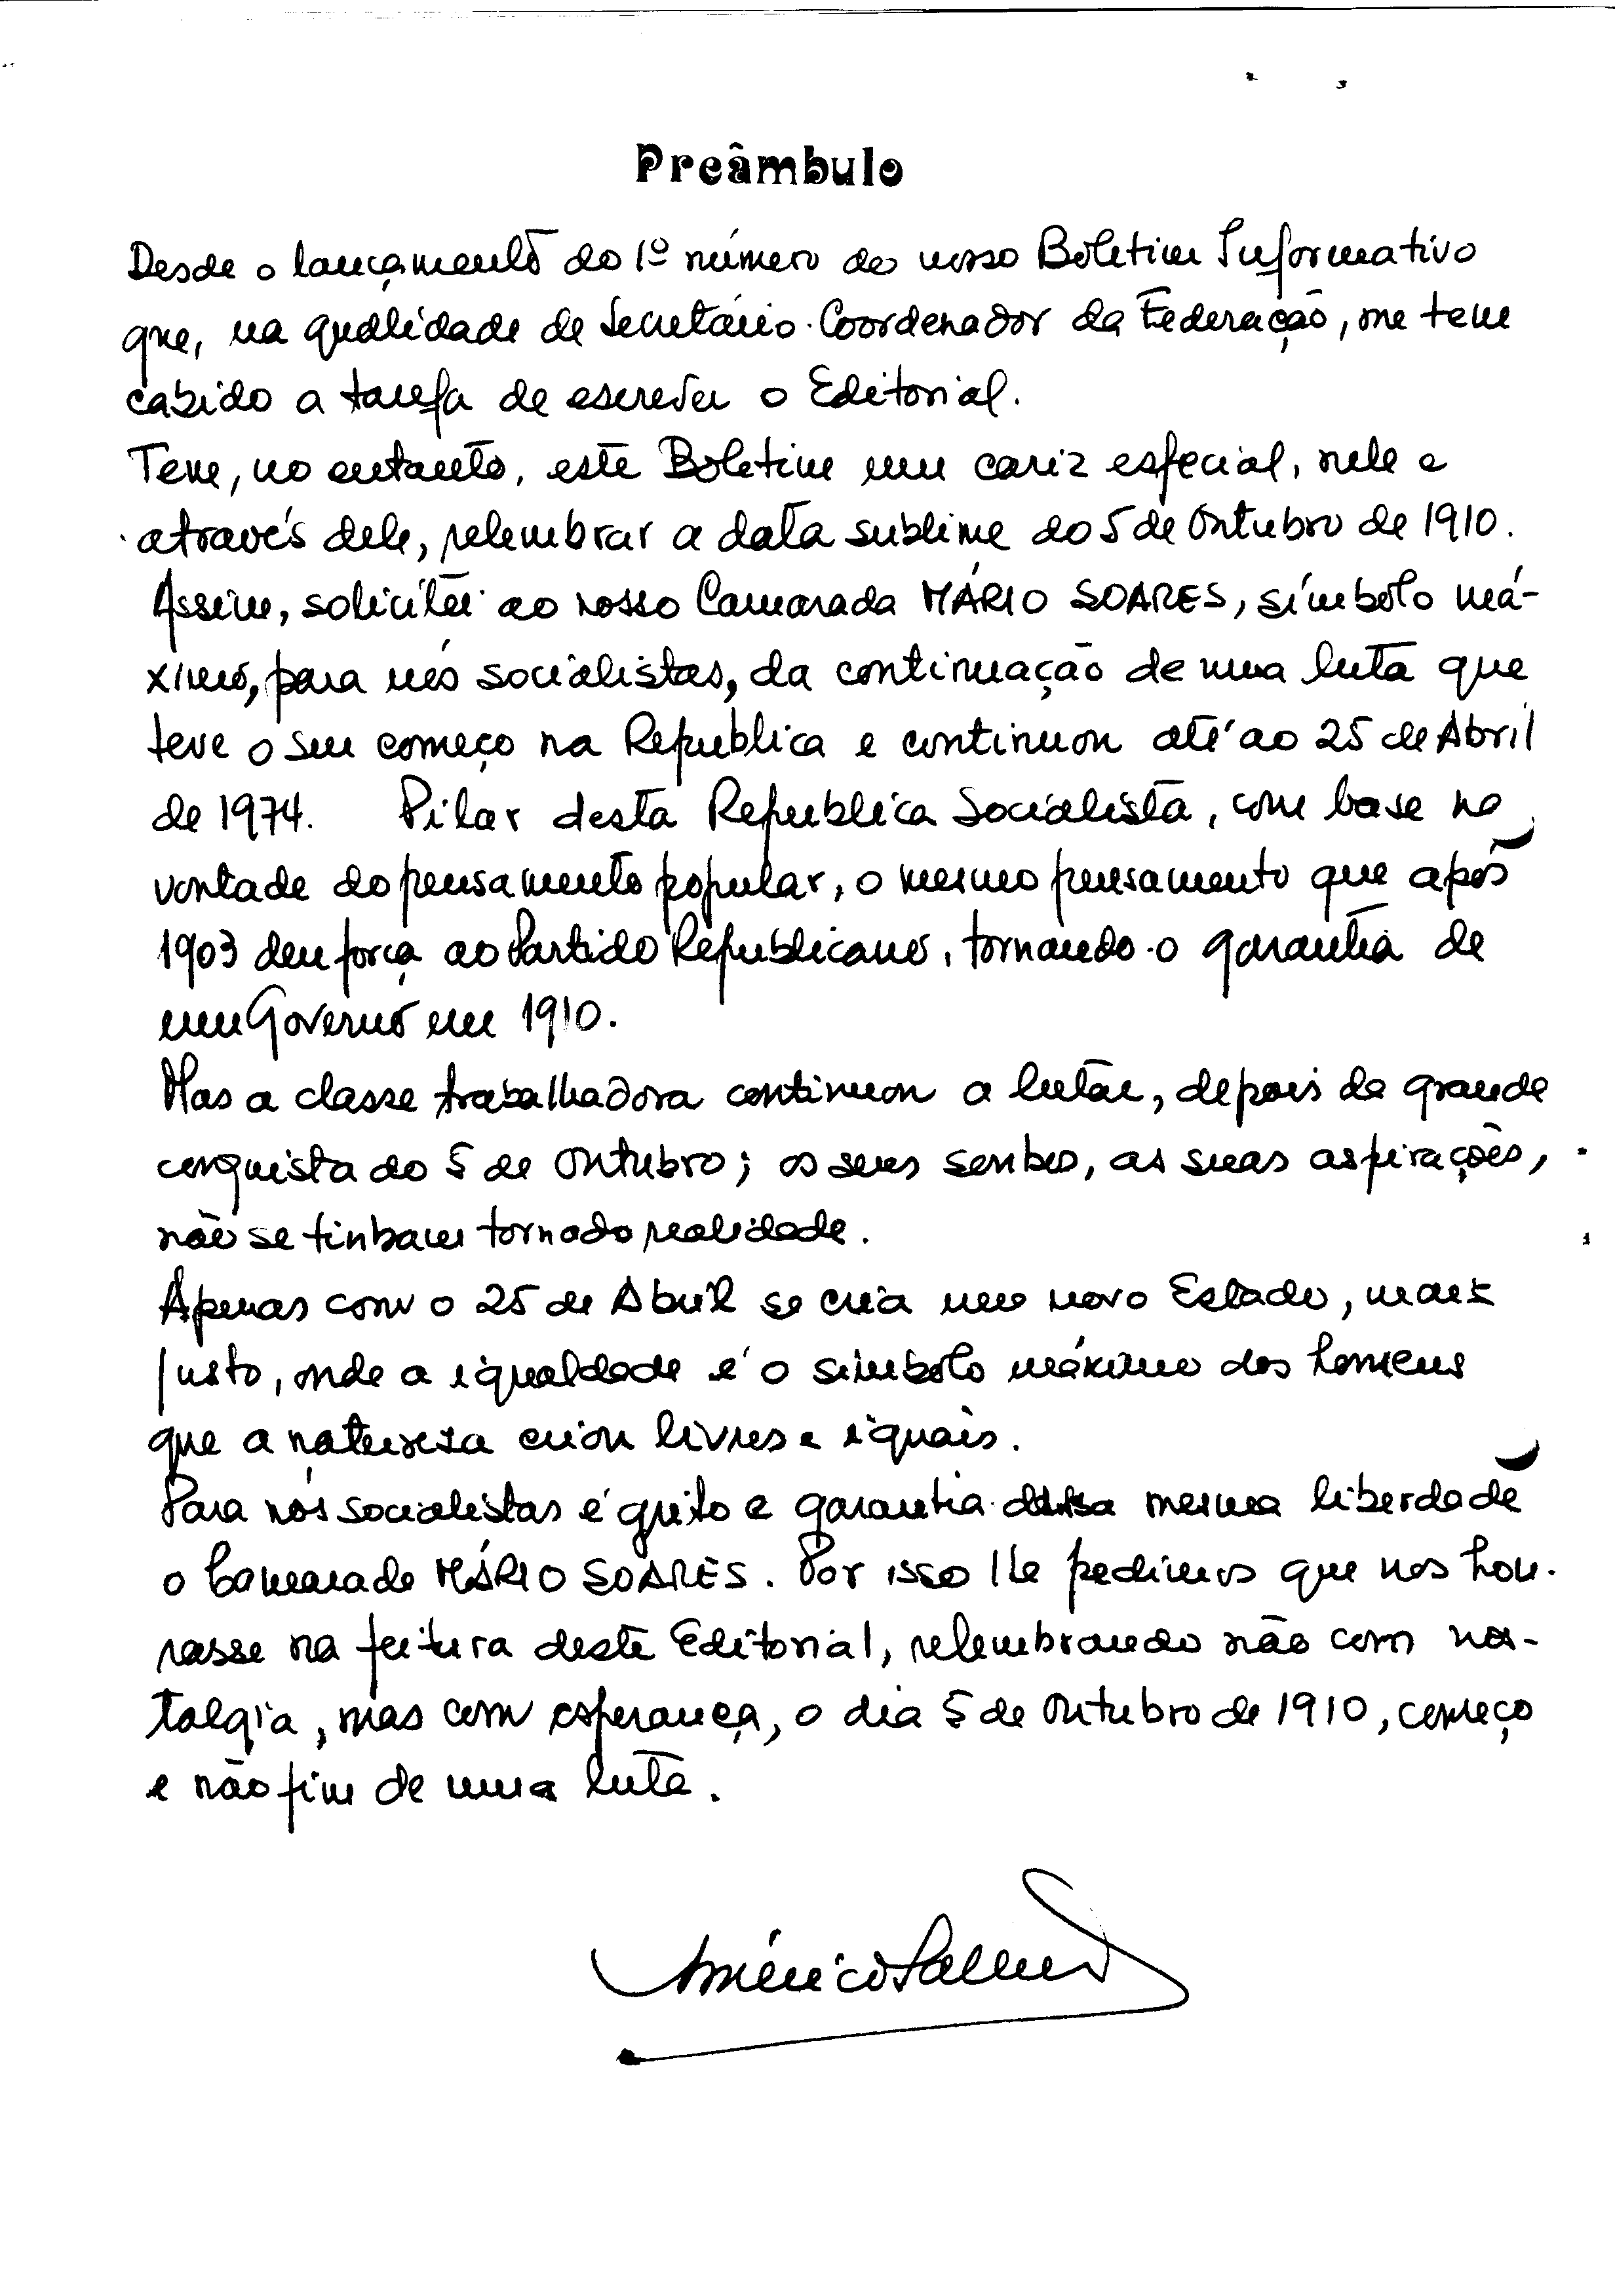 Preâmbulo
Desde o lançamento do 1º número do nosso Boletim Informativo
que, na qualidade de Secretário-Coordenador da Federação, me tem
cabido a tarefa de escrever o Editorial.
Tem, no entanto, este Boletim um cariz especial, nele e
através dele, relembrar a data sublime do 5 de Outubro de 1910.
Assim, solicitei ao nosso Camarada MÁRIO SOARES, símbolo má-
ximo, para nós socialistas, da continuação de uma luta que
teve o seu começo na Republica e continuou até ao 25 de Abril
de 1974. Pilar desta Republica Socialista, com base na
vontade do pensamento popular, o mesmo pensamento que após
1903 deu força ao Partido Republicano, tornando-o garantia de
um Governo em 1910.
Mas a classe trabalhadora continuou a lutar, depois da grande
conquista do 5 de Outubro; os seus sonhos, as suas aspirações,
não se tinham tornado realidade.
Apenas com o 25 de Abril se cria um novo Estado, mais
justo, onde a igualdade é o simbolo máximo dos homens
que a natureza criou livres e iguais.
Para nós socialistas é grito e garantia dessa mesma liberdade
o Camarada MÁRIO SOARES. Por isso lhe pedimos que nos hon-
rasse na feitura deste Editorial, relembrando não com nos-
talgia, mas com esperança, o dia 5 de Outubro de 1910, começo
e não fim de uma luta.
Américo